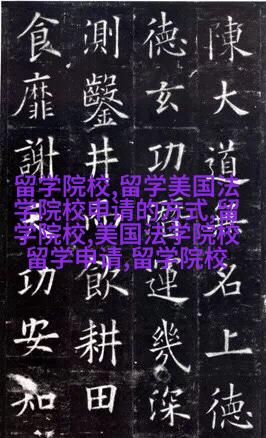 陳大道名上德
德玄功運幾深
測鑿井飲耕田
食靡謝功安知
留学院校,留学美国法
学院校申请的方式,留
学院校,美国法学院校
留学申请,留学院校